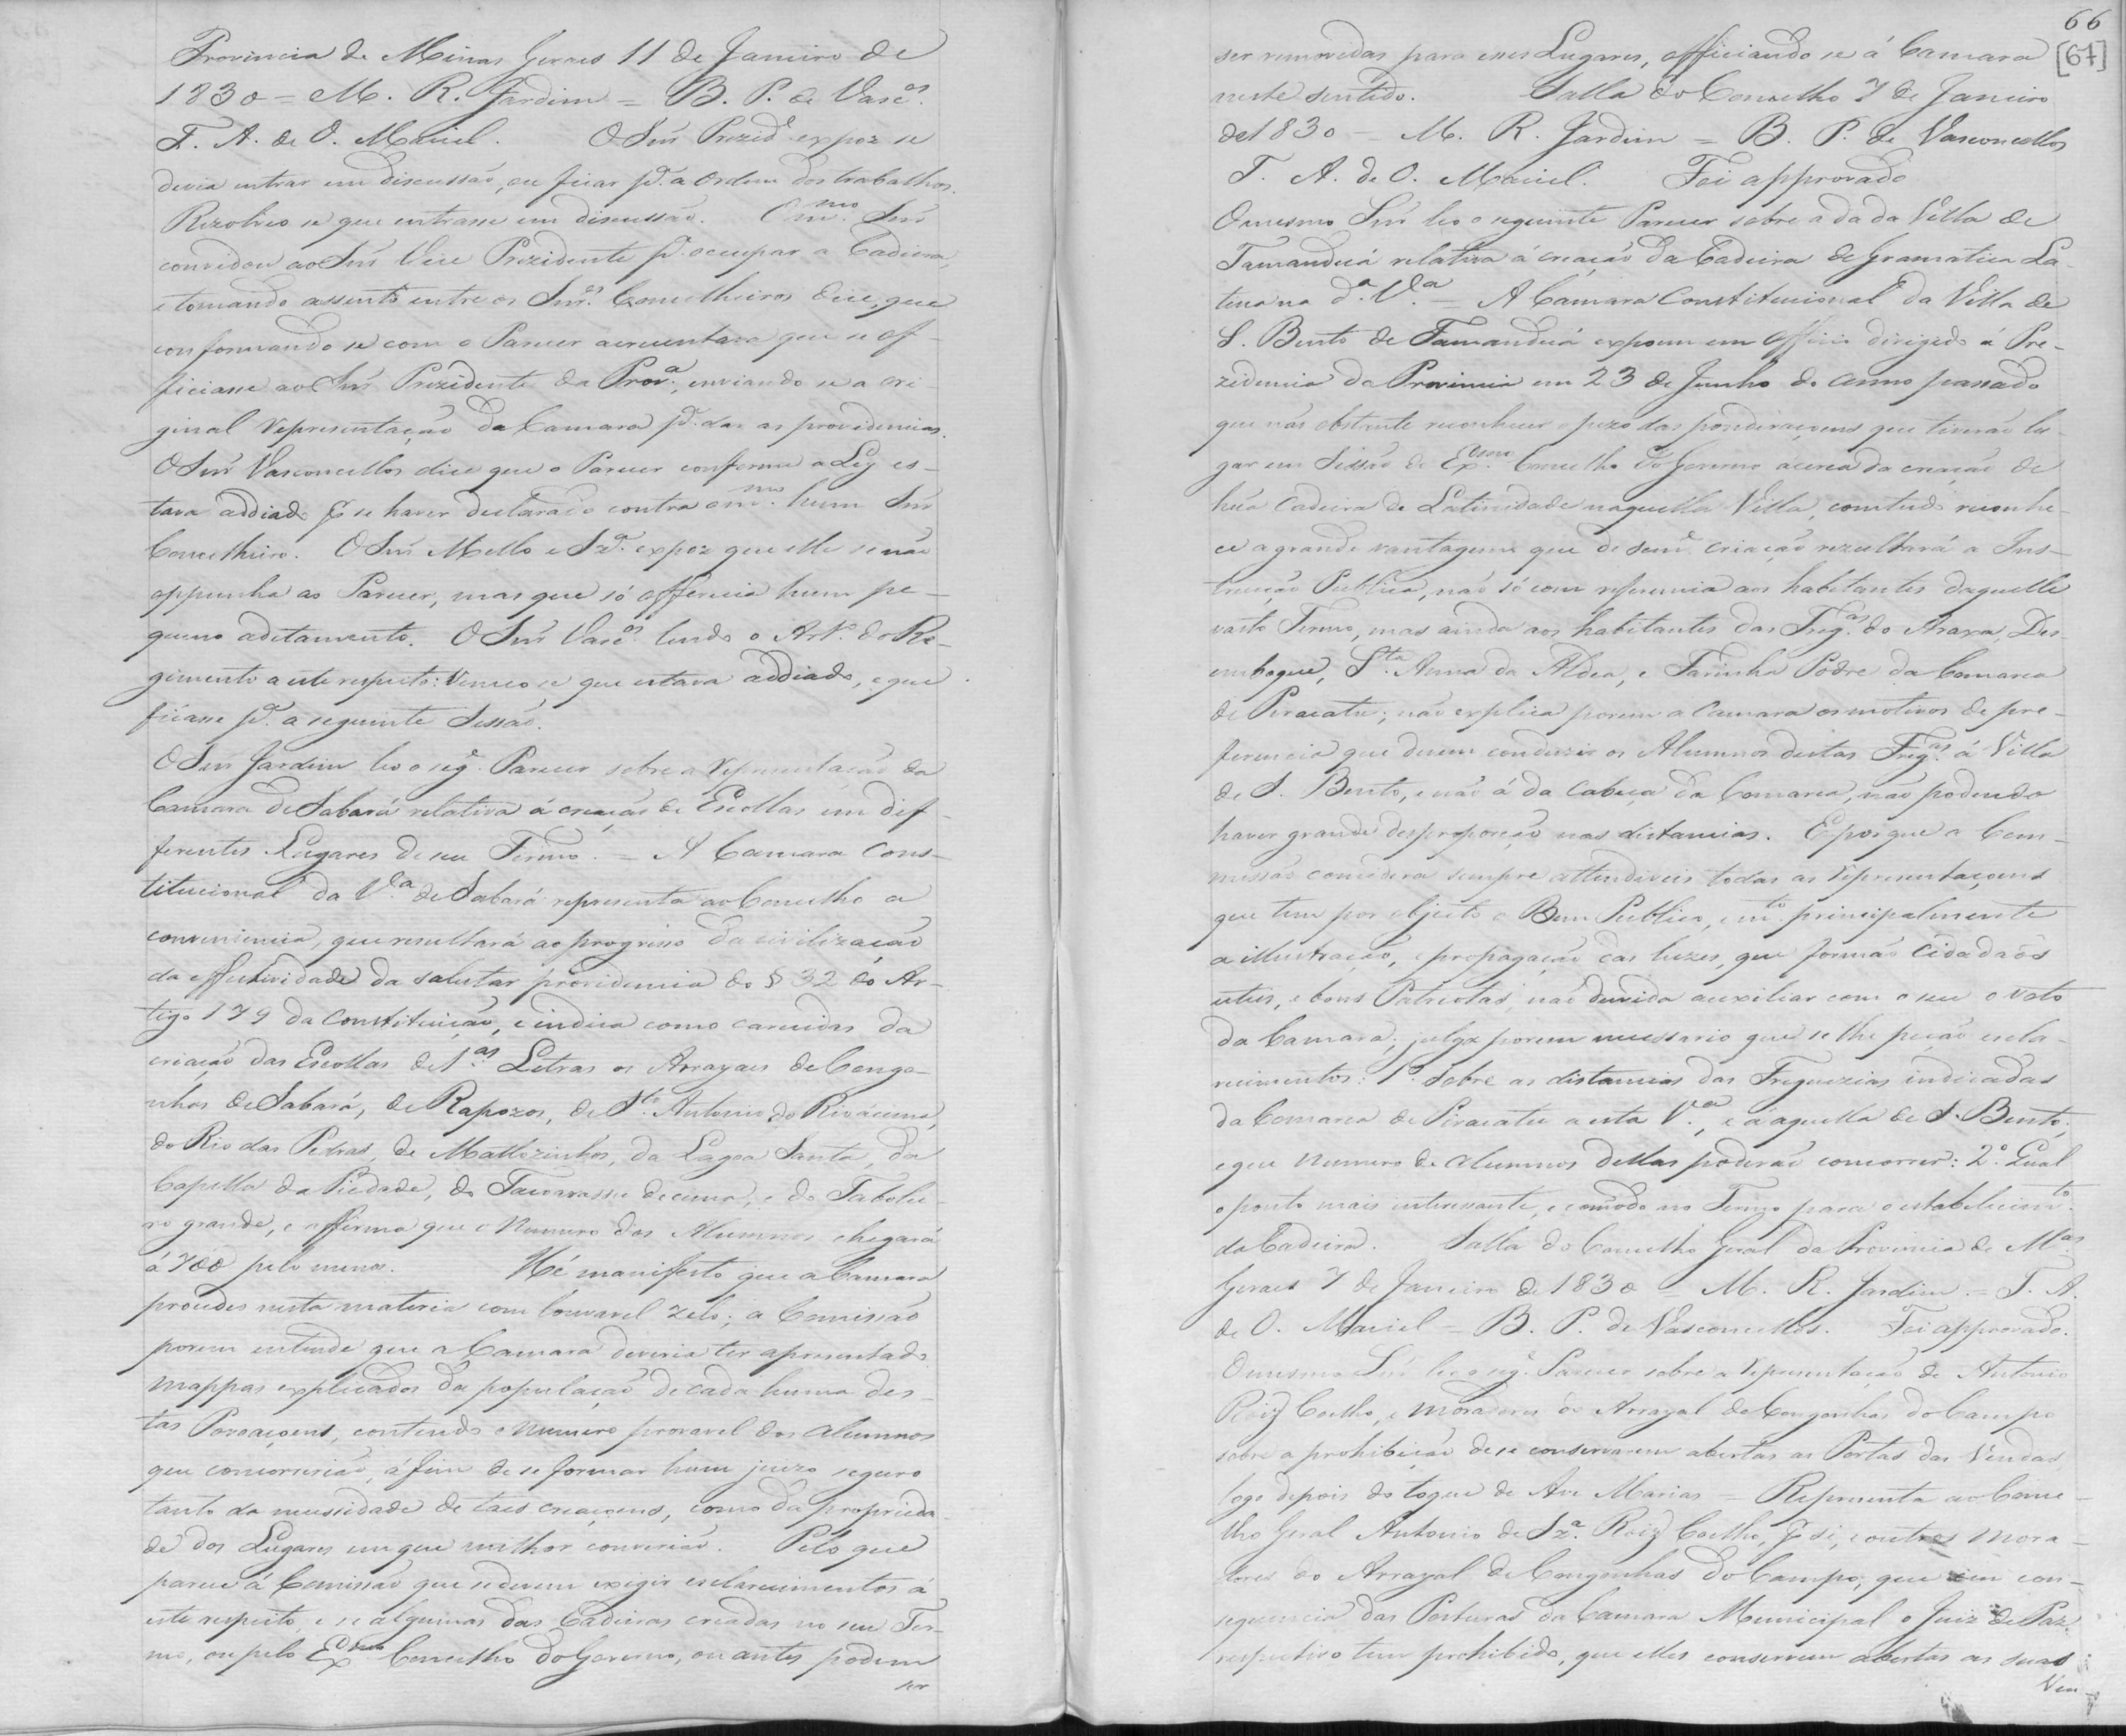 Provincia de Minas Geraes 11 de Janeiro de
1830 = M. R. Jardim = B. P. de Vasc.os
T. A. de O. Maciel. O Snr Prezid.e expoz se
devia entrar em discussão, ou ficar p.a a Ordem dos trabalhos.
Rezolveo se que entrasse em discussão. O m.mo Snr
convidou ao Snr Vice Prezidente p.a occupar a Cadeira,
e tomando assento entre os Snr.es Conselheiros dice, que
conformando se com o Parecer acrescentava que se of-
ficiasse ao Snr Prezidente da Prov.a, enviando se a ori-
ginal Representação da Camara p.a dar as providencias.
O Snr Vasconcellos dice que o Parecer conforme a Ley es-
tava addiado p.r se haver declarado contra o m.mo hum Snr
Conselheiro. O Snr Mello e Sz.a expoz que elle se não
oppunha ao Parecer, mas que só offerecia hum pe-
queno aditamento. O Snr Vasc.os lendo o Art.o do Re-
gimento a este respeito: Venceo se que estava addiado, e que
ficasse p.a a seguinte Sessão.
O Snr Jardim leo o seg.e Parecer sobre a Representação da
Camara de Sabará relativa á creação de Escollas em dif-
ferentes Lugares de seu Termo. = A Camara Cons-
titucional da V.la de Sabará representa ao Conselho a
conveniencia, que resultará ao progresso da civilização
da effectividade da salutar providencia do § 32 do Ar-
tigo 179 da Constituição, e indica como carecidas da
criação das Escollas de 1.as Letras os Arrayaes de Congo-
nhas de Sabará, de Rapozos, de S.to Antonio do Rio ácima,
do Rio das Pedras, de Mattozinhos, da Lagoa Santa, da
Capella da Piedade, do Taucarassu de cima, e do Tabolei-
ro grande, e affirma que o Numero dos Alumnos chegará
á 700 pelo menos. Hé manifesto que a Camara
procedeo nesta materia com louvavel zelo; a Comissão
porem entende que a Camara deveria ter apresentado
Mappas explicados da população de cada huma des-
tas Povoaçoens, contendo o Numero provavel dos Alumnos
que concorrerião, á fim de se formar hum juizo seguro
tanto da necessidade de taes creaçoens, como da proprieda-
de dos Lugares em que melhor convirião. Pelo que
parece á Comissão que se devem exigir esclarecimentos á
este respeito, e se algumas das Cadeiras creadas no seu Ter-
mo, ou pelo Ex.mo Conselho do Governo, ou antes podem
ser
66
[67]
ser removedas para esses Lugares, officiando se á Camara
neste sentido. Salla do Conselho 7 de Janeiro
de 1830 = M. R. Jardim = B. P. de Vasconcellos
T. A. de O. Maciel. Foi approvado
O mesmo Snr leo o seguinte Parecer sobre a da da Villa de
Tamanduá relativa á creação da Cadeira de Gramatica La-
tina na d.a V.la = A Camara Constitucional da Villa de
S. Bento de Tamanduá expoem em Officio dirigido á Pre-
zidencia da Provincia em 23 de Junho do anno passado
que não obstante reconhecer o pezo das ponderaçoens que tiverão lu-
gar em Sessão do Ex.mo Conselho do Governo ácerca da creação de
hũa Cadeira de Latinidade naquella Villa, comtudo reconhe-
ce a grande vantagem que de sem.e criação rezultará a Ins-
trucção Publica, não só com referencia aos habitantes daquelle
vasto Termo, mas ainda aos habitantes das Freg.as do Araxa, Des-
emboque, S.ta Anna da Aldea, e Farinha Podre da Comarca
de Piracatu; não explica porem a Camara os motivos de pre-
ferencia que devem conduzir os Alumnos destas Freg.as á Villa
de S. Bento, e não á da Cabeça da Comarca, não podendo
haver grande desproporção nas distancias. E porque a Com-
missão considera sempre attendiveis todas as Representaçoens
que tem por objecto o Bem Publico, e m.to principalmente
a illustração, e propagação das luzes, que formão Cidadãos
uteis, e bons Patriotas, não duvida auxiliar com o seu o voto
da Camara; julga porem necessario que se lhe peção escla-
recimentos: 1.o Sobre as distancias das Freguezias indicadas
da Comarca de Piracatu a esta V.a, e á aquella de S. Bento,
e que Numero de Alumnos dellas poderão concorrer: 2.o Qual
o ponto mais interessante, e comodo no Termo para o estabelecim.to
da Cadeira. Salla do Conselho Geral da Provincia de M.as
Geraes 7 de Janeiro de 1830 = M. R. Jardim = T. A.
de O. Maciel = B. P. de Vasconcellos. Foi approvado.
O mesmo Snr leo o seg.e Parecer sobre a Representação de Antonio
Roiz Coelho, e Moradores do Arrayal de Congonhas do Campo
sobre a prohibição de se conservarem abertas as Portas das Vendas,
logo depois do toque de Ave Marias = Representa ao Conse-
lho Geral Antonio de Sz.a Roiz Coelho, p.r si, e outros Mora-
dores do Arrayal de Congonhas do Campo, que em con-
sequencia das Posturas da Camara Municipal o Juiz de Paz
respectivo tem prohibido, que elles conservem abertas as suas
Ven